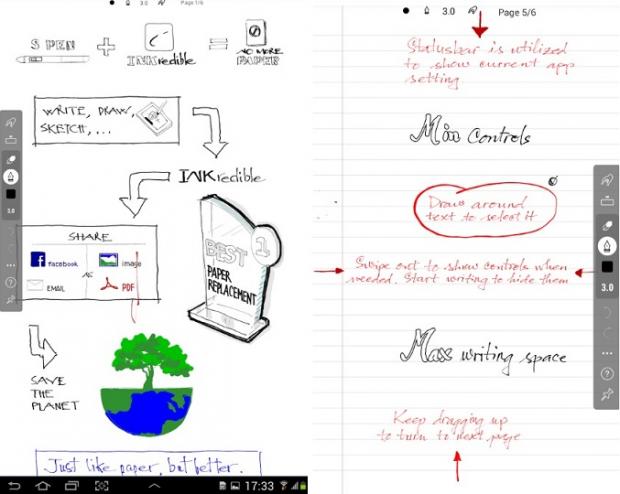 3.0 Page 1/6
S PEN + INKredible = NO MORE PAPER
WRITE, DRAW,
SKETCH,...
INKredible
SHARE
facebook
AS
image
EMAIL
PDF
BEST
1
PAPER
REPLACEMENT
SAVE
THE
PLANET
Just like paper, but better.
3.0
17:33
3.0 Page 5/6
Statusbar is utilized
to show current app
setting
Min Controls
Draw around
text to select it
Swipe out to show controls when
needed. Start writing to hide them
Max writing space
Keep dragging up
to turn to next page
3.0